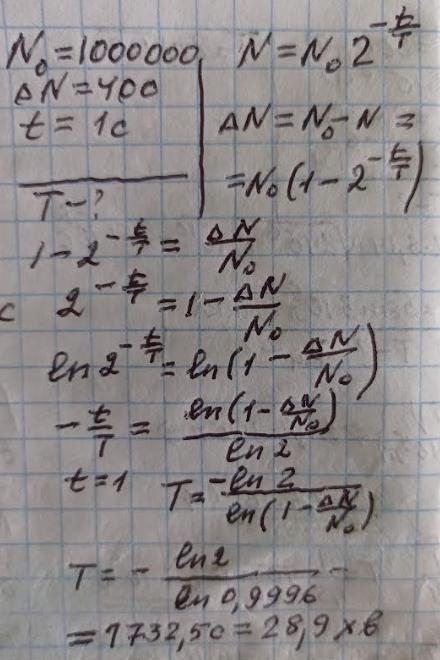 N₀ = 1000000
ΔN = 400
t = 1c
T - ?
N = N₀ 2^(-t/T)
ΔN = N₀ - N =
= N₀ (1 - 2^(-t/T))
1 - 2^(-t/T) = ΔN/N₀
c 2^(-t/T) = 1 - ΔN/N₀
ln 2^(-t/T) = ln(1 - ΔN/N₀)
-t/T = ln(1 - ΔN/N₀)/ln 2
t = 1 T = -ln 2/ln(1 - ΔN/N₀)
T = - ln2/ln 0,9996 -
= 1732,5c = 28,9 хв